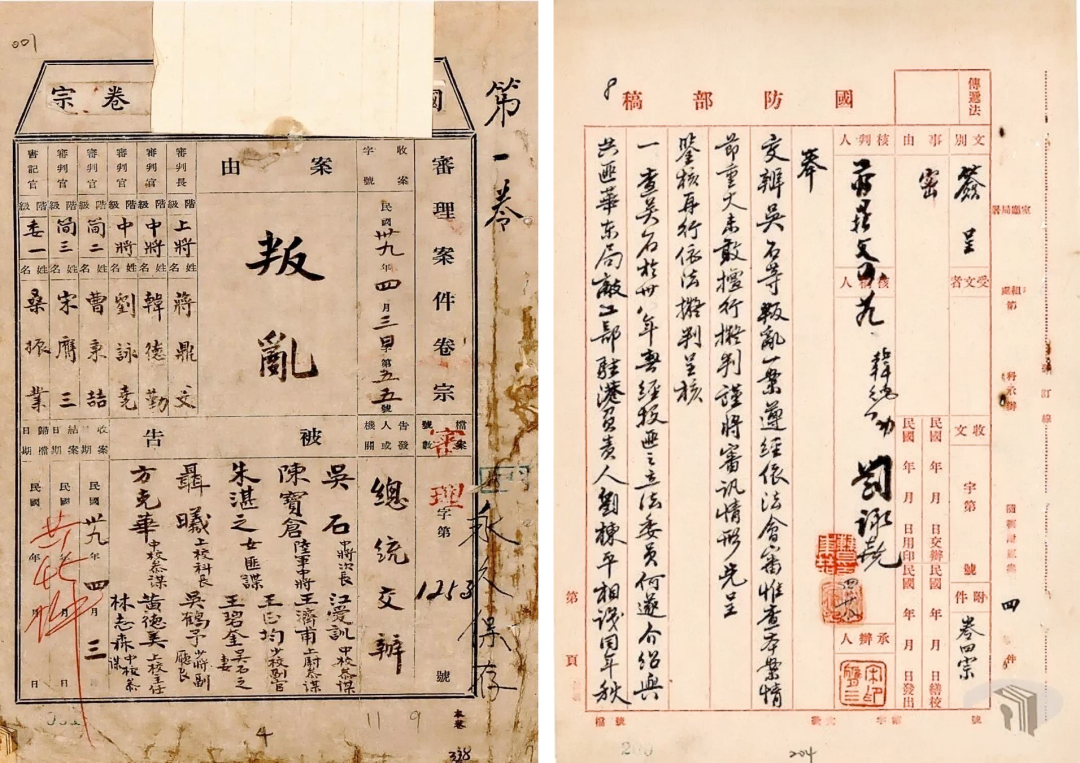 001
第一卷
國
卷宗
審理案件卷宗
收案字號
民國卅九年四月三日字第五五號
案由
叛亂
審判長 階級 上將 姓名 蔣鼎文
審判官 階級 中將 姓名 韓德勤
審判官 階級 中將 姓名 劉詠堯
審判官 階級 簡二 姓名 曹秉喆
審判官 階級 簡三 姓名 宋膺三
書記官 階級 委一 姓名 桑振業
檔案號數
審理字第1253號
永久保存
告發人或機關
總統交辦
被告
吳石 中將次長
江愛訓 中校參謀
陳寶倉 陸軍中將
王濟甫 上尉參謀
朱湛之 女匪諜
王正均 少校副官
王碧奎 吳石之妻
聶曦 上校科長
吳鶴予 少將副廳長
方克華 中校參謀
黃德美 上校主任
林志森 中校參謀
收案日期 民國卅九年四月三日
結案日期 民國 年 月 日
歸檔日期 民國 年 月 日
11
9
4
本卷
338
8
國防部稿
傳遞法
文別 簽呈
事由 密
核判人
蔣鼎文
韓德勤
劉詠堯
受文者
核稿人
收文 字第 號
附件 卷四宗
民國 年 月 日交辦
民國 年 月 日繕校
民國 年 月 日用印
民國 年 月 日發出
承辦人
奉
交辦吳石等叛亂一案遵經依法會審惟查本案情
節重大未敢擅行擬判謹將審訊情形先呈
鑒核再行依法擬判呈核
一查吳石於卅八年春經投匪之立法委員何遂介紹與
共匪華東局敵工部駐港負責人劉棟平相識同年秋
第 頁
訂線
204